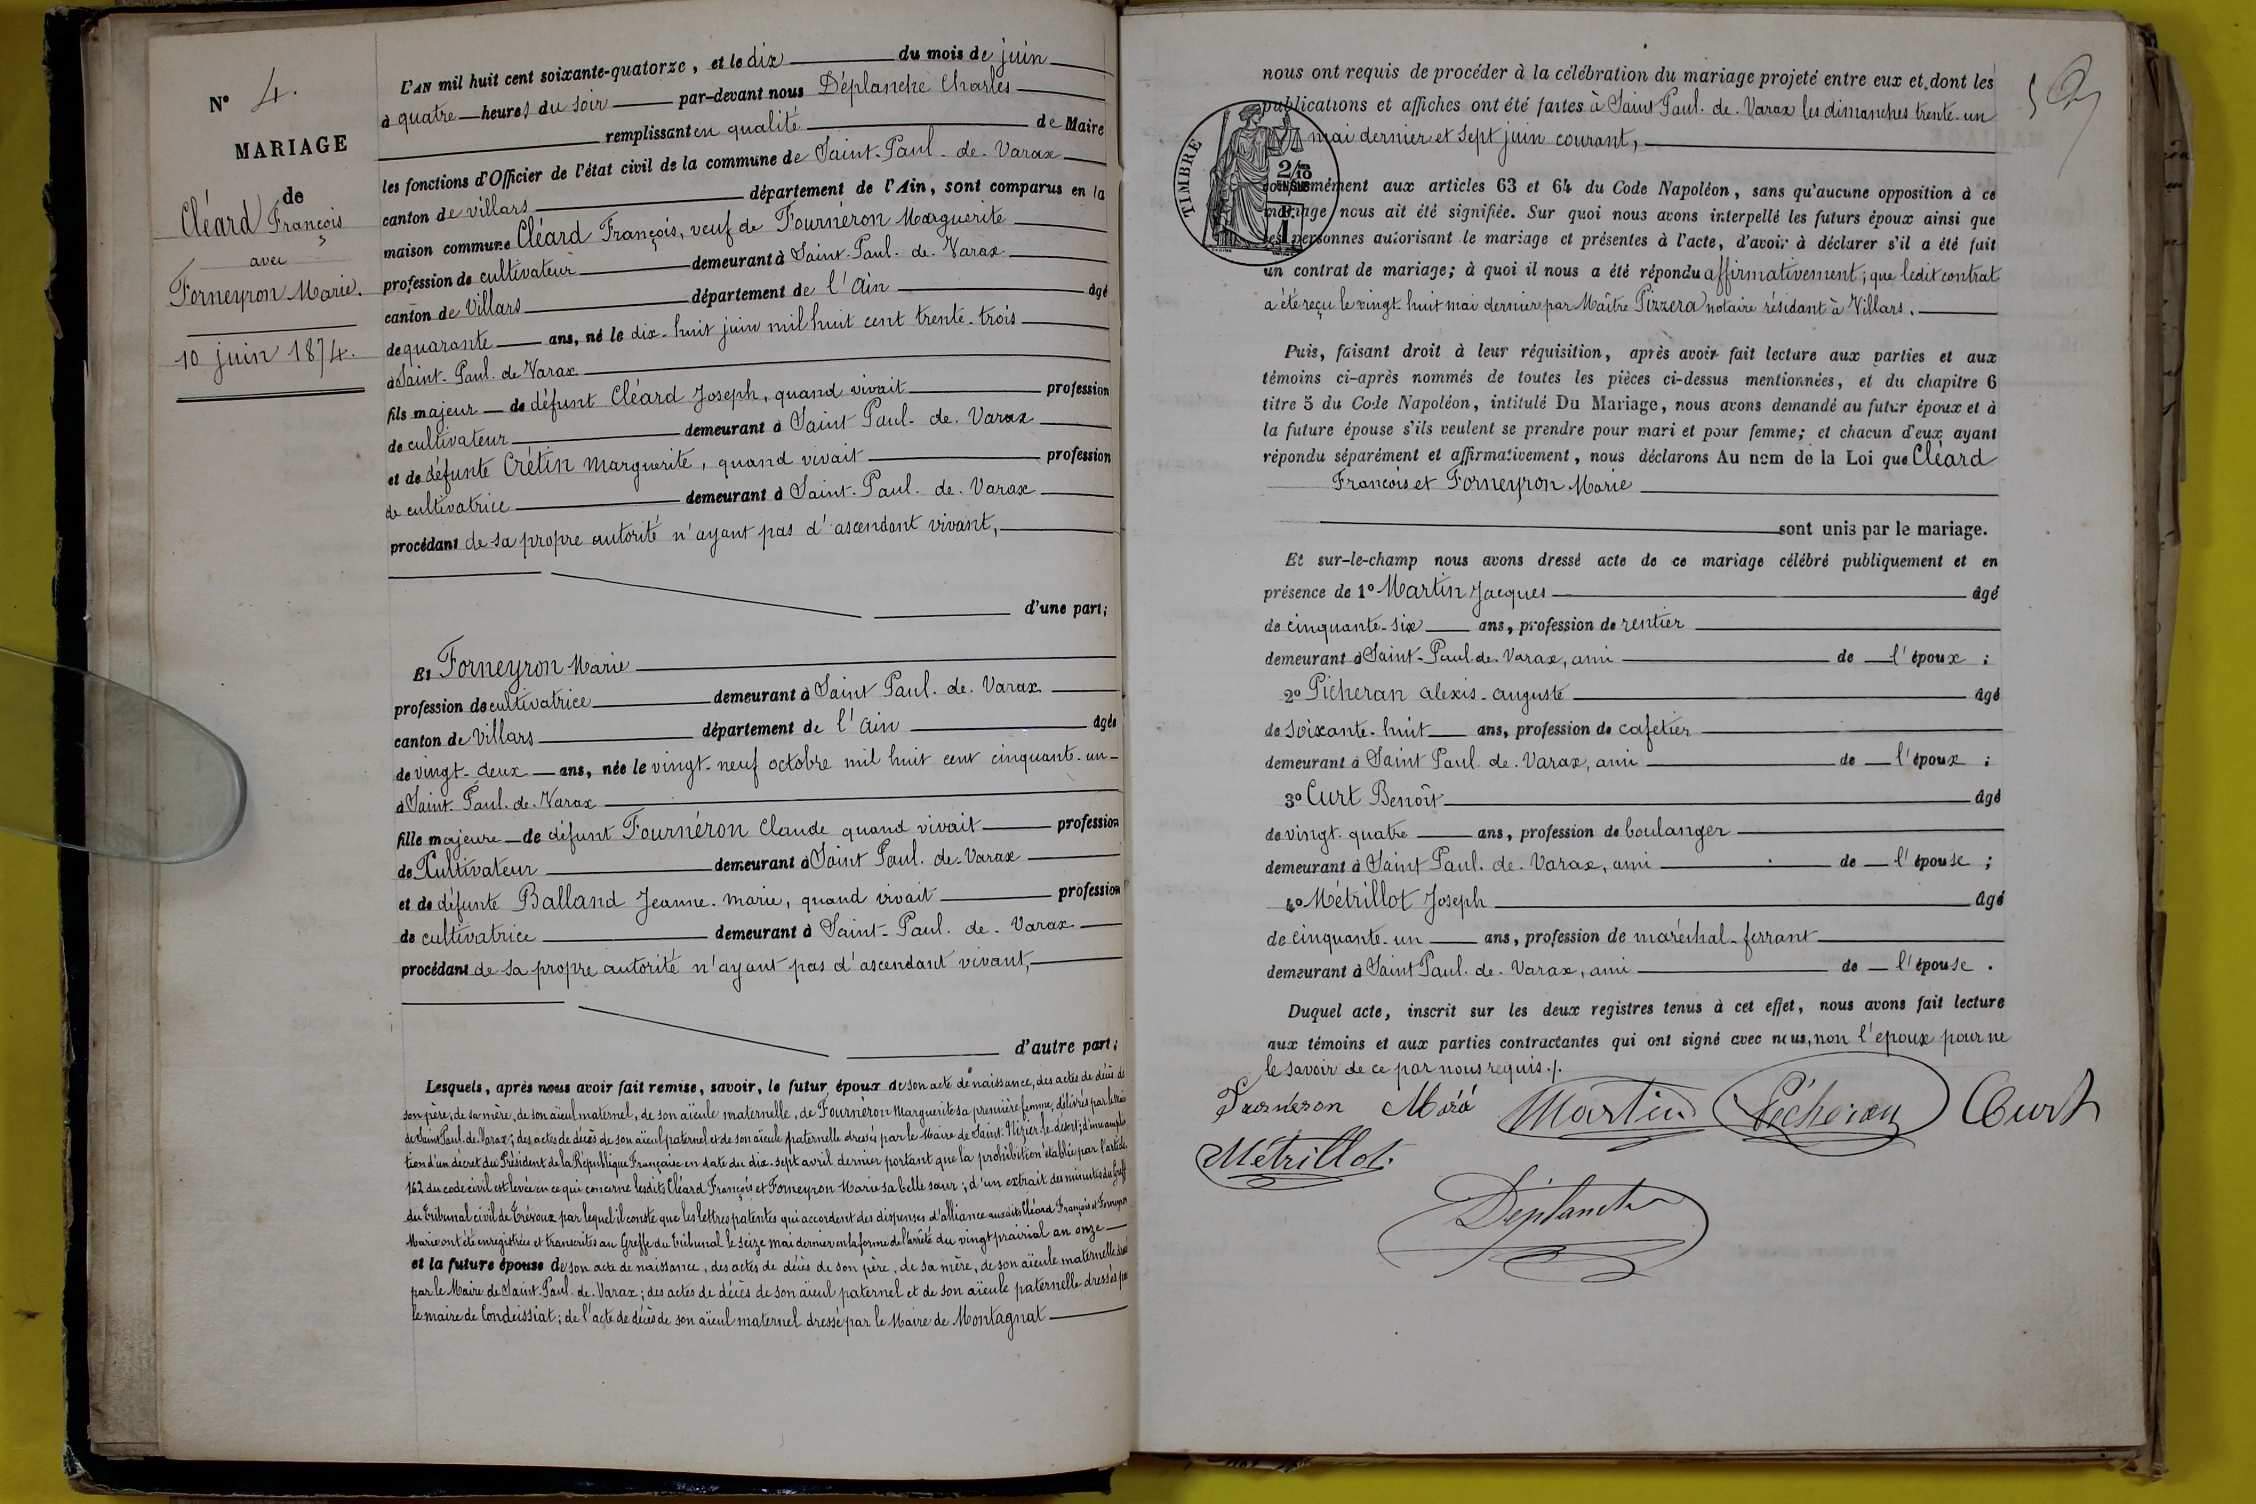 N° 4.
MARIAGE
de
Cléard François
avec
Forneyron Marie.
10 juin 1874.
L'AN mil huit cent soixante-quatorze, et le dix du mois de juin
à quatre heures du soir par-devant nous Déplanche Charles
remplissant en qualité de Maire
les fonctions d'Officier de l'état civil de la commune de Saint-Paul-de-Varax
canton de villars département de l'Ain, sont comparus en la
maison commune Cléard François, veuf de Fournéron Marguerite
profession de cultivateur demeurant à Saint-Paul-de-Varax
canton de Villars département de l'Ain âgé
de quarante ans, né le dix-huit juin mil huit cent trente-trois
à Saint-Paul-de Varax
fils majeur de défunt Cléard Joseph, quand vivait profession
de cultivateur demeurant à Saint Paul-de-Varax
et de défunte Crétin Marguerite, quand vivait profession
de cultivatrice demeurant à Saint-Paul-de-Varax
procédant de sa propre autorité n'ayant pas d'ascendant vivant,
d'une part;
Et Forneyron Marie
profession de cultivatrice demeurant à Saint Paul-de-Varax
canton de Villars département de l'Ain âgée
de vingt-deux ans, née le vingt-neuf octobre mil huit cent cinquante-un
à Saint-Paul-de-Varax
fille majeure de défunt Fournéron Claude quand vivait profession
de Cultivateur demeurant à Saint Paul-de-Varax
et de défunte Balland Jeanne-Marie, quand vivait profession
de cultivatrice demeurant à Saint-Paul-de-Varax
procédant de sa propre autorité n'ayant pas d'ascendant vivant,
d'autre part;
Lesquels, après nous avoir fait remise, savoir, le futur époux de son acte de naissance, des actes de décès de
son père, de sa mère, de son aïeul maternel, de son aïeule maternelle, de Fournéron Marguerite sa première femme, délivrés par le Maire
de Saint Paul-de-Varax; des actes de décès de son aïeul paternel et de son aïeule paternelle dressés par le Maire de Saint-Nizier-le-désert; d'une amplia
tion d'un décret du Président de la République Française en date du dix-sept avril dernier portant que la prohibition établie par l'article
162 du code civil est levée en ce qui concerne lesdits Cléard François et Forneyron Marie sa belle sœur; d'un extrait des minutes du Greffe
du Tribunal civil de Trévoux par lequel il conste que les lettres patentes qui accordent des dispenses d'alliance auxdits Cléard François et Forneyron
Marie ont été enregistrées et transcrites au Greffe du Tribunal le seize mai dernier en la forme de l'arrêté du vingt prairial an onze
et la future épouse de son acte de naissance, des actes de décès de son père, de sa mère, de son aïeule maternelle
par le Maire de Saint-Paul-de-Varax; des actes de décès de son aïeul paternel et de son aïeule paternelle dressés par
le maire de Condeissiat; de l'acte de décès de son aïeul maternel dressé par le Maire de Montagnat
nous ont requis de procéder à la célébration du mariage projeté entre eux et dont les
publications et affiches ont été faites à Saint Paul-de-Varax les dimanches trente-un
mai dernier et sept juin courant,
TIMBRE
conformément aux articles 63 et 64 du Code Napoléon, sans qu'aucune opposition à ce
mariage nous ait été signifiée. Sur quoi nous avons interpellé les futurs époux ainsi que
les personnes autorisant le mariage et présentes à l'acte, d'avoir à déclarer s'il a été fait
un contrat de mariage; à quoi il nous a été répondu affirmativement; que ledit contrat
a été reçu le vingt-huit mai dernier par Maître Pizzera notaire résidant à Villars.
Puis, faisant droit à leur réquisition, après avoir fait lecture aux parties et aux
témoins ci-après nommés de toutes les pièces ci-dessus mentionnées, et du chapitre 6
titre 5 du Code Napoléon, intitulé Du Mariage, nous avons demandé au futur époux et à
la future épouse s'ils veulent se prendre pour mari et pour femme; et chacun d'eux ayant
répondu séparément et affirmativement, nous déclarons Au nom de la Loi que Cléard
François et Forneyron Marie
sont unis par le mariage.
Et sur-le-champ nous avons dressé acte de ce mariage célébré publiquement et en
présence de 1° Martin Jacques âgé
de cinquante-six ans, profession de rentier
demeurant à Saint-Paul-de-Varax, ami de l'époux ;
2° Picheran Alexis-Auguste âgé
de soixante-huit ans, profession de cafetier
demeurant à Saint Paul-de-Varax, ami de l'époux ;
3° Curt Benoît âgé
de vingt-quatre ans, profession de boulanger
demeurant à Saint Paul-de-Varax, ami de l'épouse ;
4° Métrillot Joseph âgé
de cinquante-un ans, profession de maréchal-ferrant
demeurant à Saint Paul-de-Varax, ami de l'épouse .
Duquel acte, inscrit sur les deux registres tenus à cet effet, nous avons fait lecture
aux témoins et aux parties contractantes qui ont signé avec nous, non l'époux pour ne
le savoir de ce par nous requis./.
Fournéron Martin Picheran Curt
Métrillot
Déplanche